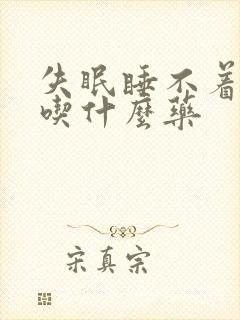 失眠睡不着
喫什麼藥
宋真宗